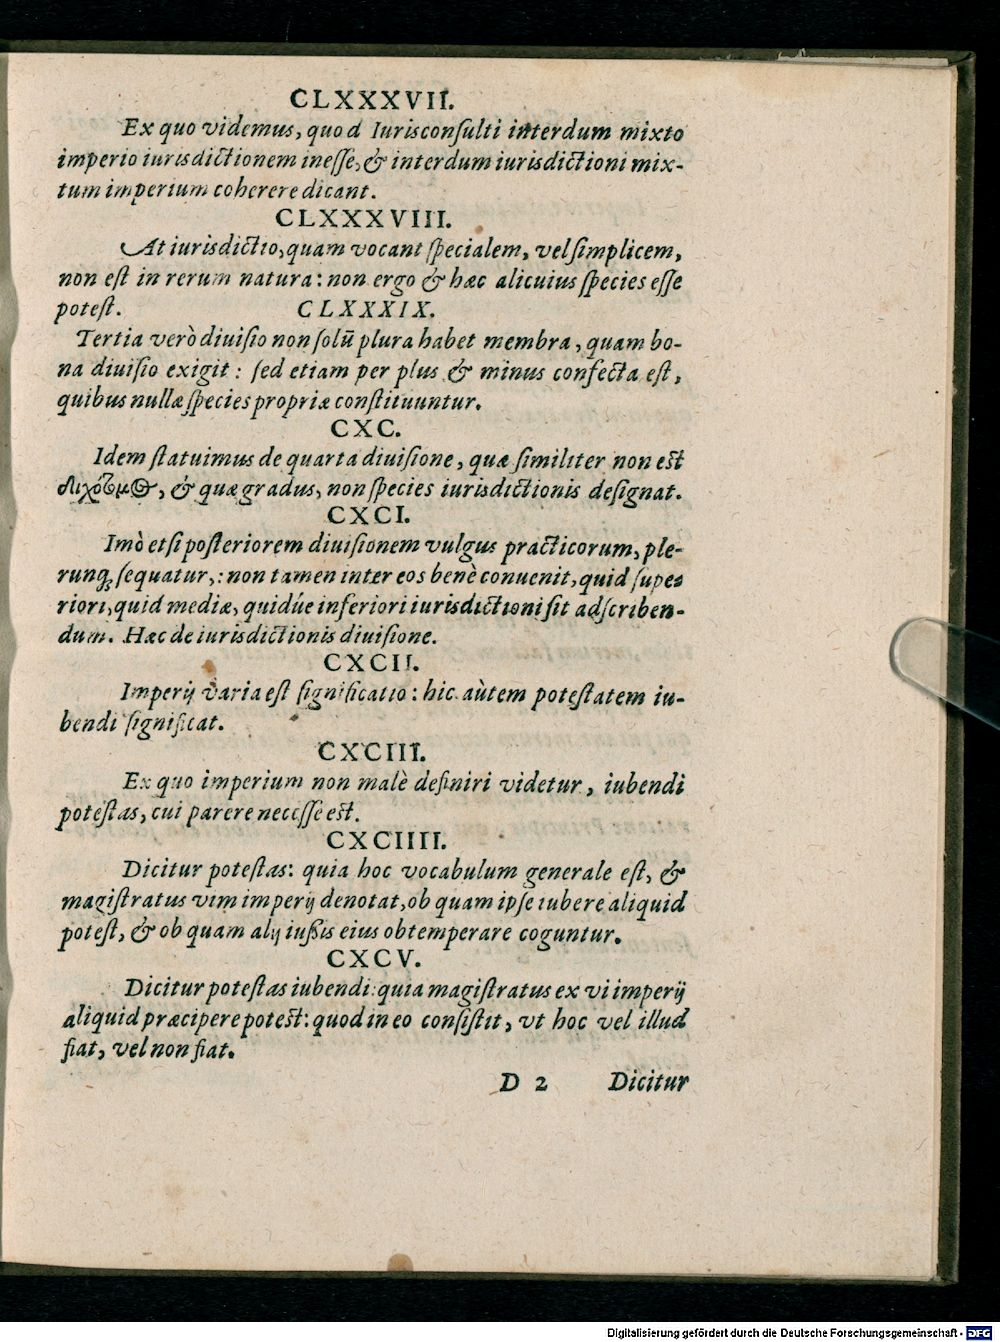 CLXXXVII.
Ex quo videmus, quod Iurisconſulti interdum mixto
imperio iurisdictionem ineſſe, & interdum iurisdictioni mix-
tum imperium coherere dicant.
CLXXXVIII.
At iurisdictio, quam vocant ſpecialem, vel ſimplicem,
non eſt in rerum natura: non ergo & hæc alicuius ſpecies eſſe
poteſt. CLXXXIX.
Tertia verò diuiſio non ſolũ plura habet membra, quam bo-
na diuiſio exigit: ſed etiam per plus & minus confecta eſt,
quibus nullæ ſpecies propriæ conſtituuntur.
CXC.
Idem ſtatuimus de quarta diuiſione, quæ ſimiliter non eſt
διχότομος, & quæ gradus, non ſpecies iurisdictionis deſignat.
CXCI.
Imò etſi poſteriorem diuiſionem vulgus practicorum, ple-
runq; ſequatur,: non tamen inter eos benè conuenit, quid ſupe-
riori, quid mediæ, quidúe inferiori iurisdictioni ſit adſcriben-
dum. Hæc de iurisdictionis diuiſione.
CXCII.
Imperij varia eſt ſignificatio: hic aùtem poteſtatem iu-
bendi ſignificat.
CXCIII.
Ex quo imperium non malè definiri videtur, iubendi
poteſtas, cui parere neceſſe eſt.
CXCIIII.
Dicitur poteſtas: quia hoc vocabulum generale eſt, &
magiſtratus vim imperij denotat, ob quam ipſe iubere aliquid
poteſt, & ob quam alij iuſsis eius obtemperare coguntur.
CXCV.
Dicitur poteſtas iubendi: quia magiſtratus ex vi imperij
aliquid præcipere poteſt: quod in eo conſiſtit, vt hoc vel illud
fiat, vel non fiat.
D 2 Dicitur
Digitalisierung gefördert durch die Deutsche Forschungsgemeinschaft - DFG